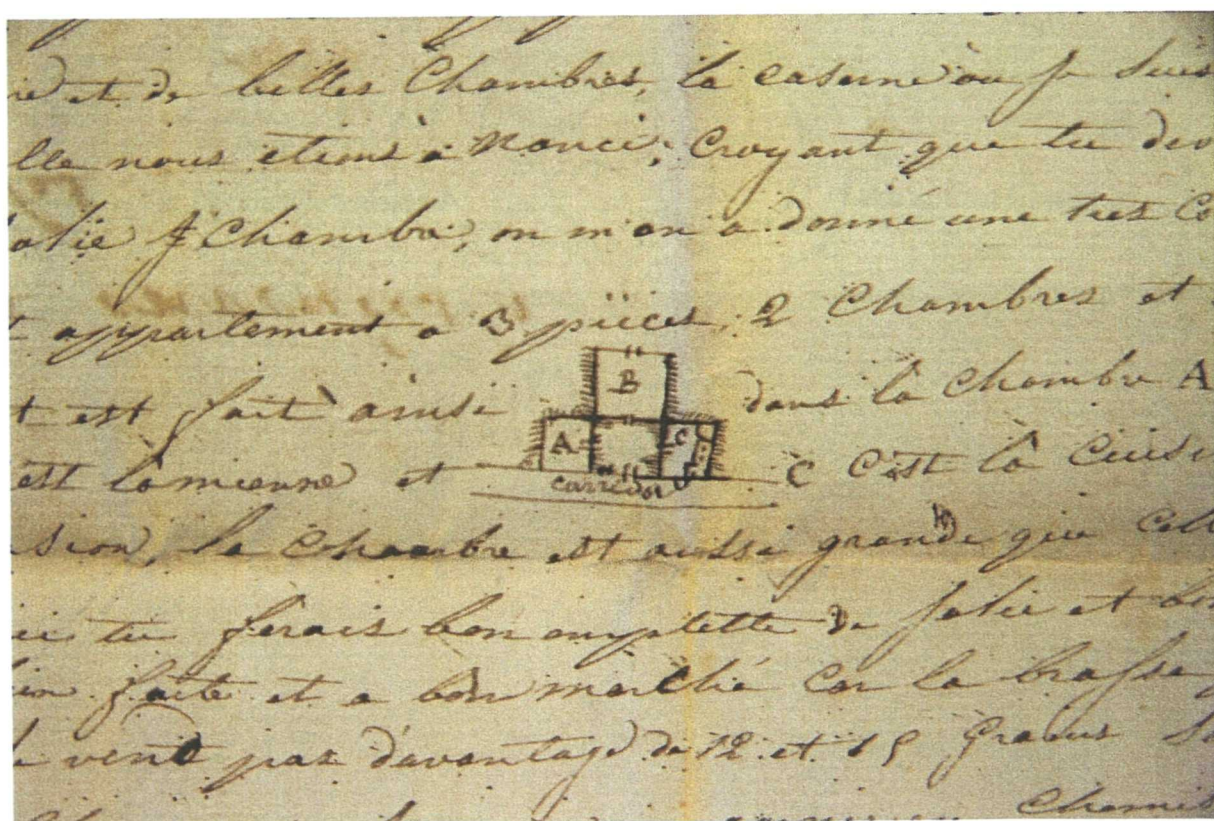 et de belles Chambres, la caserne où je suis
lle nous etions à Nanci; Croyant que tu dev
jolie Chambre, on m'en a donné une tres Co
appartement a 3 piéces, 2 Chambres et
t est fait ainsi B dans la Chambre A
A C
est lamienne et C C'est la Cuisi
carridor
sion, la Chambre est aussi grande que Cell
tu ferais bon emplette de jolie et
faite et a bon marché Car la brasse
vend pas davantage de 12 et 15 Gra
Chemis